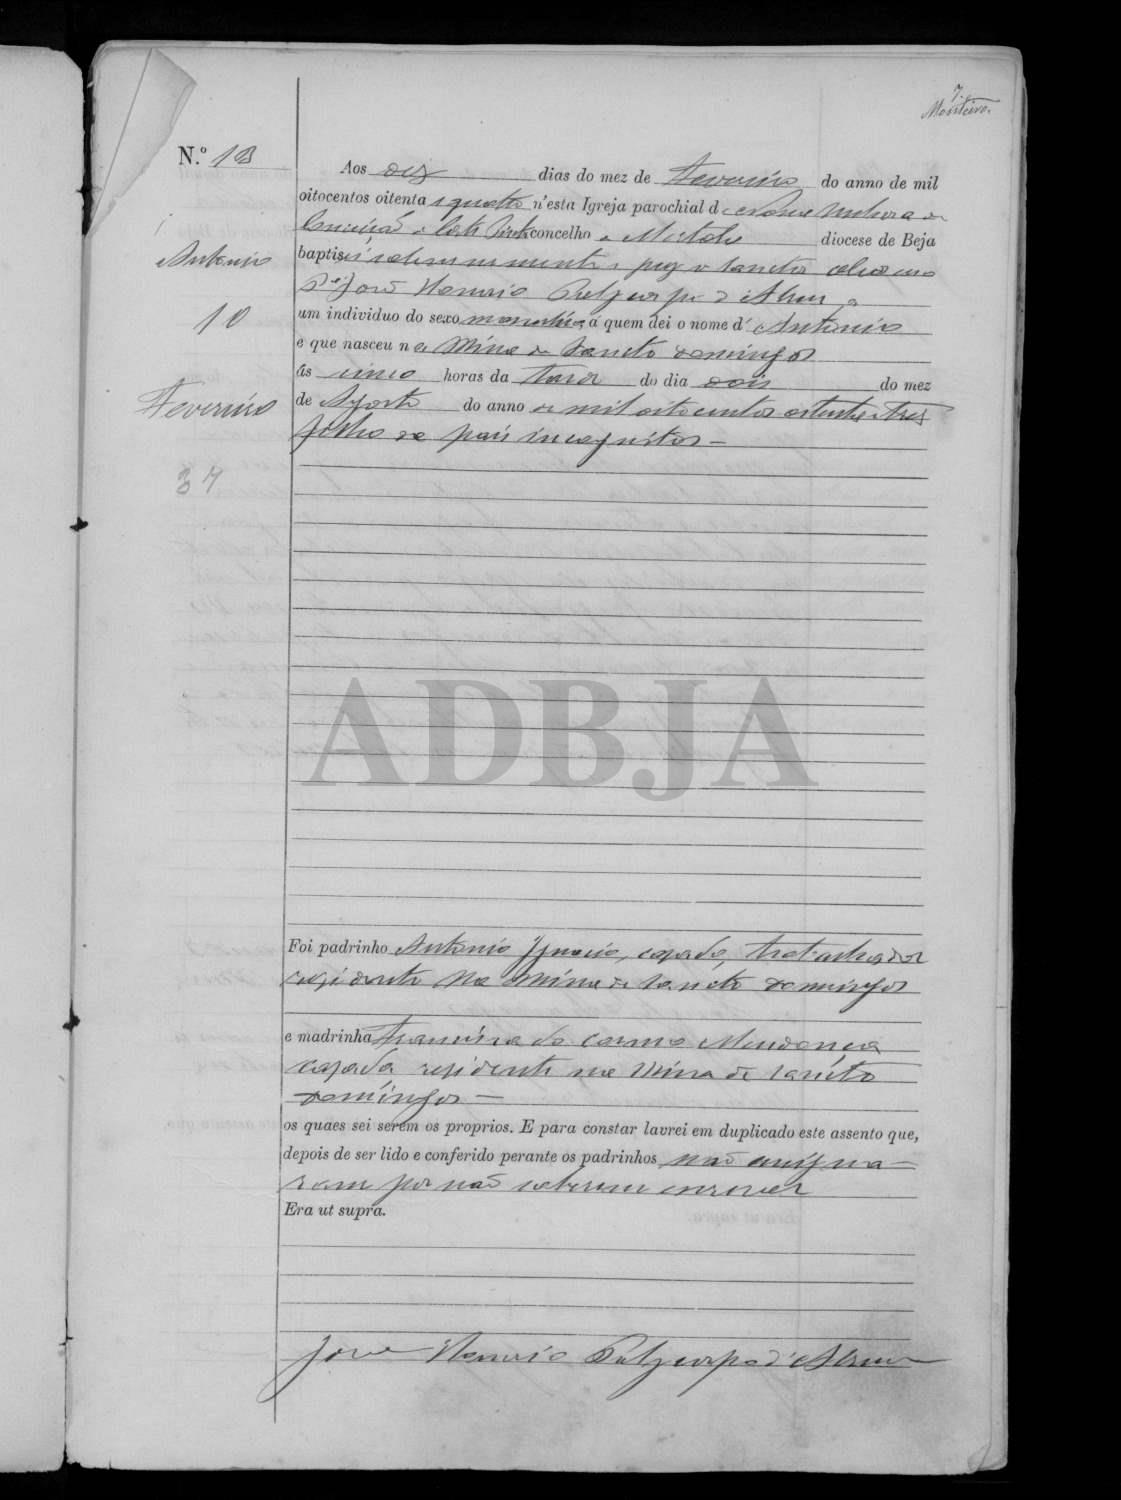 7.
Monteiro.
N.º 13
Aos dez dias do mez de Fevereiro do anno de mil
oitocentos oitenta e quatro n'esta Igreja parochial de Nossa Senhora da
Conceição concelho de Mertola diocese de Beja
Antonio
baptisei solemnemente e puz os sanctos oleos
José d'Abreu
10
um individuo do sexo masculino á quem dei o nome d' Antonio
e que nasceu na Mina de Sancto Domingos
ás cinco horas da tarde do dia dois do mez
Fevereiro
de Agosto do anno de mil oitocentos oitenta e tres
filho de pais incognitos –
37
ADBJA
Foi padrinho Antonio Ignacio, casado, trabalhador
residente na Mina de Sancto Domingos
e madrinha Francisca do Carmo Mendonça
casada residente na Mina de Sancto
Domingos –
os quaes sei serem os proprios. E para constar lavrei em duplicado este assento que,
depois de ser lido e conferido perante os padrinhos não assigna-
ram por não saberem escrever
Era ut supra.
José d'Abreu